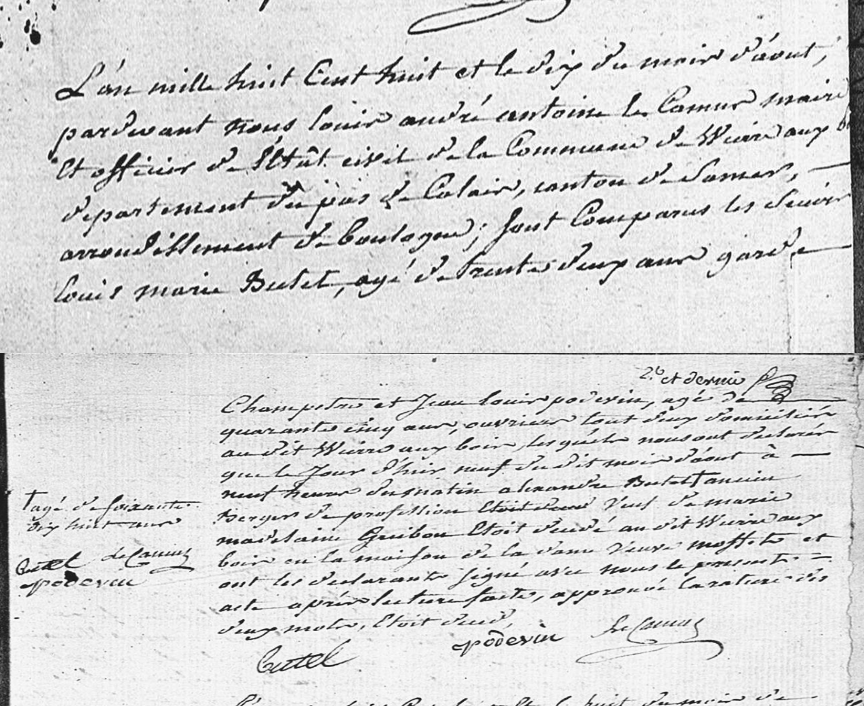 L'an mille huit Cent huit et le dix du mois d'août,
pardevant nous louis andré antoine le Camus maire
Et officier de l'Etât civil de la Commune de Wirre aux
département du pas de Calais, canton de Samer,
arrondissement de boulogne; sont Comparus les Sieurs
louis marie Butel, agé de trente deux ans garde
2e et dernier
Champetre et Jean louis podevin, agé de
quarante cinq ans, ouvrier tout deux domiciliés
au dit Wirre aux bois, lesquels nous ont declarés
que le Jour d'huis neuf du dit mois d'août à
neuf heures du matin alexandre Butel ancien
Berger de profession Etoit décédé Veuf de marie
madelaine Guibon Etoit décédé au dit Wirre aux
bois en la maison de la dame Veuve et
ont les declarants signé avec nous le présent
acte après lecture faite, approuvé la rature des
deux mots, Etoit décédé,
Butel podevin le Camus
agé de soixante
dix huit ans
Butel le Camus
podevin